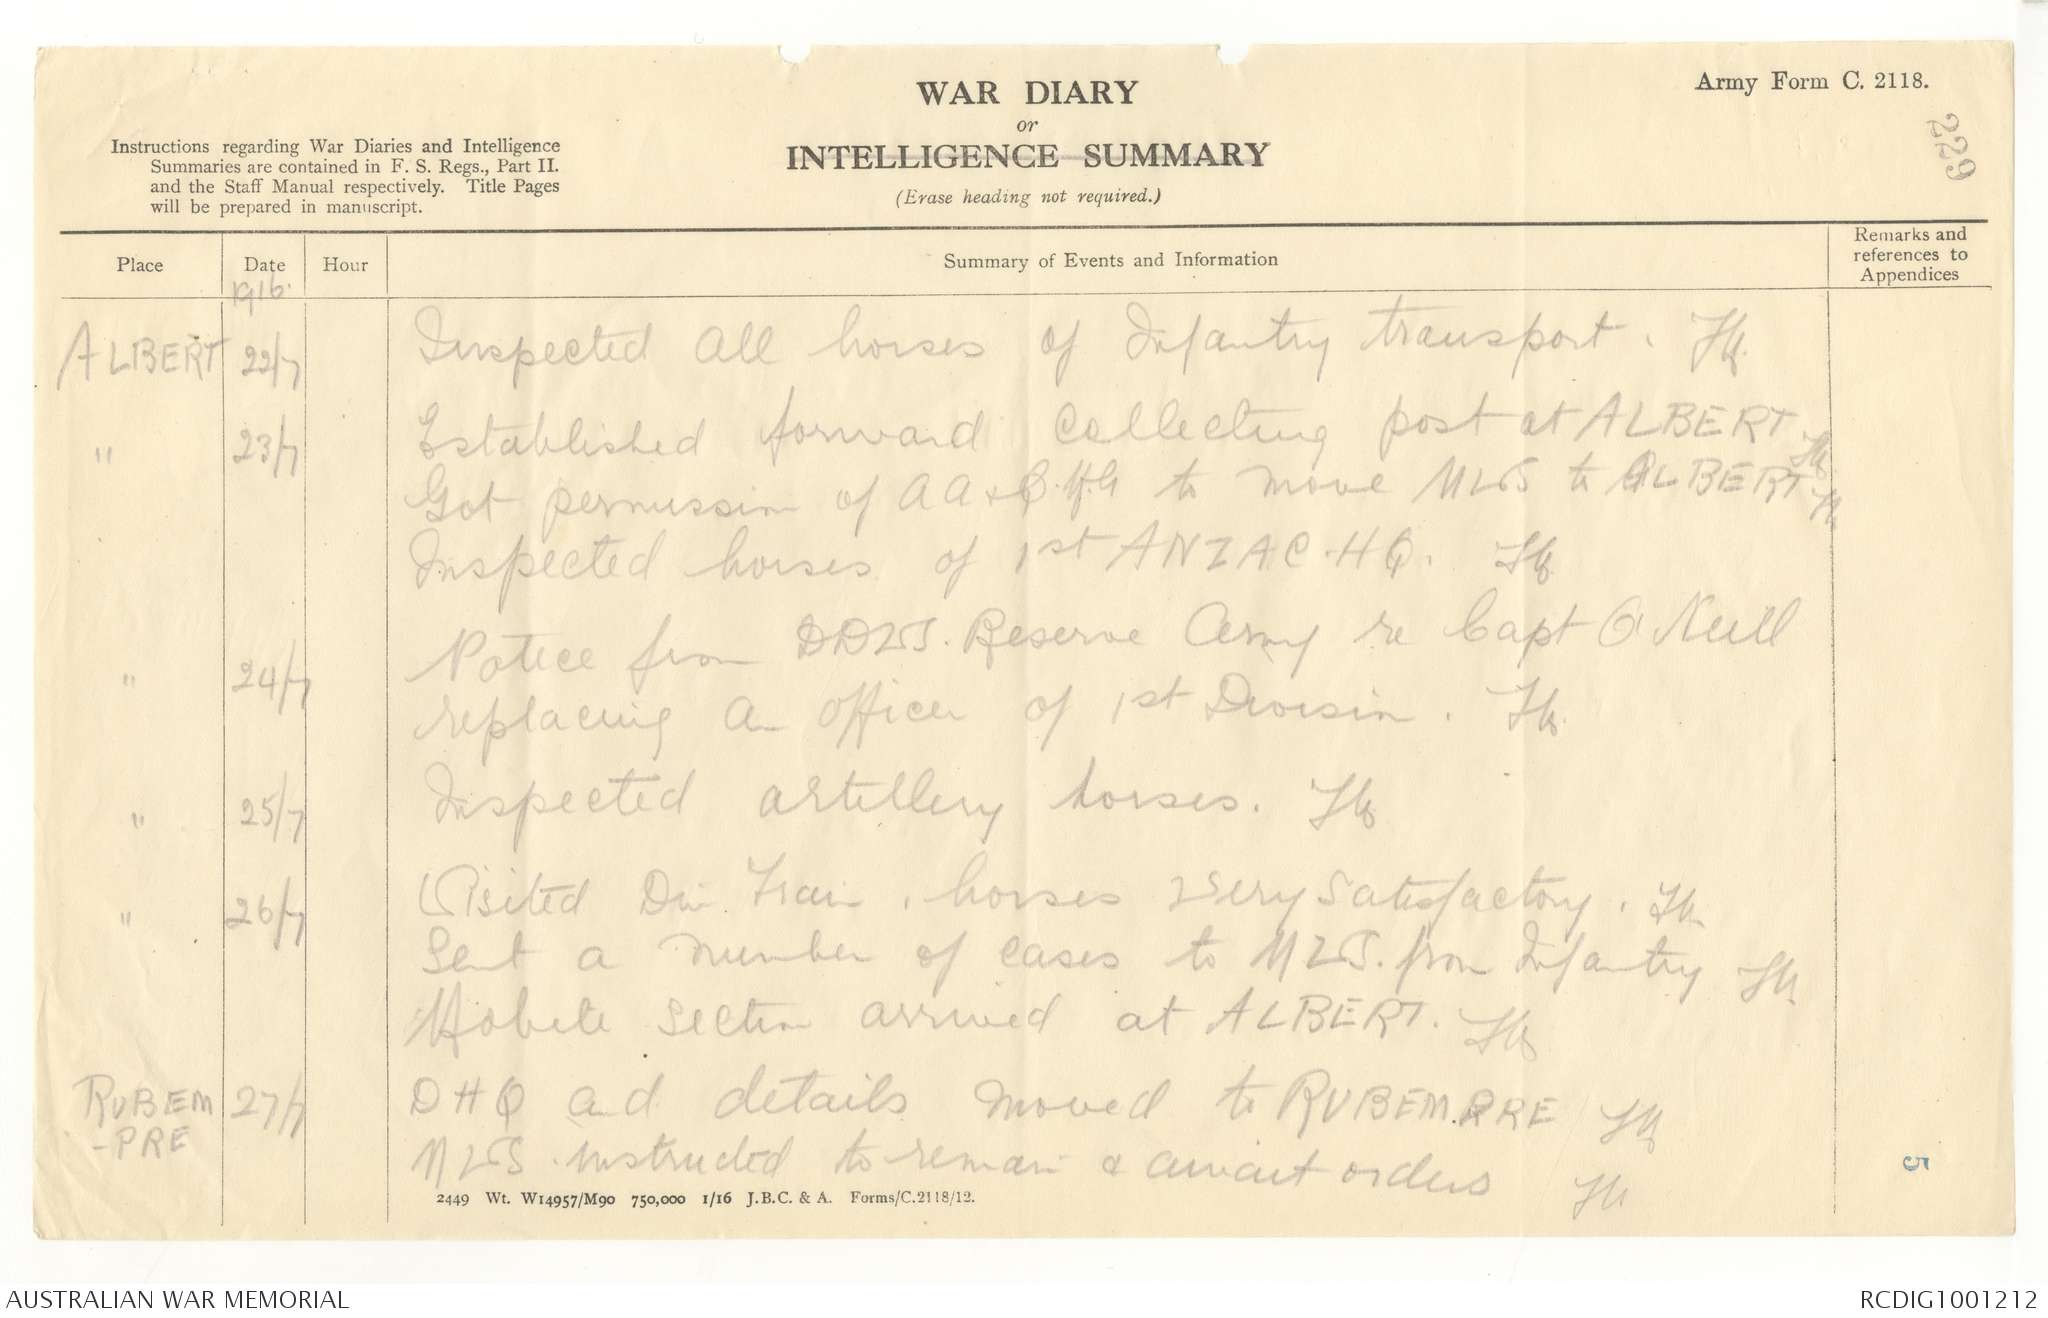 WAR DIARY
or
INTELLIGENCE SUMMARY
(Erase heading not required.)
Army Form C. 2118.
229
Instructions regarding War Diaries and Intelligence
Summaries are contained in F. S. Regs., Part II.
and the Staff Manual respectively. Title Pages
will be prepared in manuscript.
Place Date Hour Summary of Events and Information Remarks and references to Appendices
1916.
ALBERT 22/7 Inspected all horses of Infantry transport.
" 23/7 Established forward collecting post at ALBERT
Got permission of AA & Q.M.G to move MVS to ALBERT
Inspected horses of 1st ANZAC HQ.
" 24/7 Notice from DDVS. Reserve Army re Capt O'Neill
replacing an officer of 1st Division.
" 25/7 Inspected artillery horses.
" 26/7 Visited Div. Train, horses very satisfactory.
Sent a number of cases to MVS. from Infantry
Mobile Section arrived at ALBERT.
RUBEM 27/7 DHQ and details moved to RUBEM.PRE
-PRE
MVS. instructed to remain & await orders
5
2449 Wt. W14957/M90 750,000 1/16 J.B.C. & A. Forms/C.2118/12.
AUSTRALIAN WAR MEMORIAL
RCDIG1001212